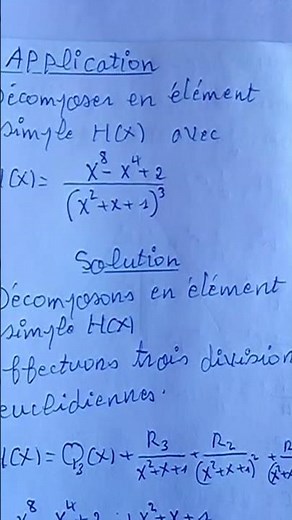 Application
écomposer en élément
simple H(X) avec
(X) = X⁸ - X⁴ + 2 / (X² + X + 1)³
Solution
Décomposons en élément
simple H(X)
ffectuons trois division
euclidiennes.
(X) = Q₃(X) + R₃ / X²+X+1 + R₂ / (X²+X+1)² +